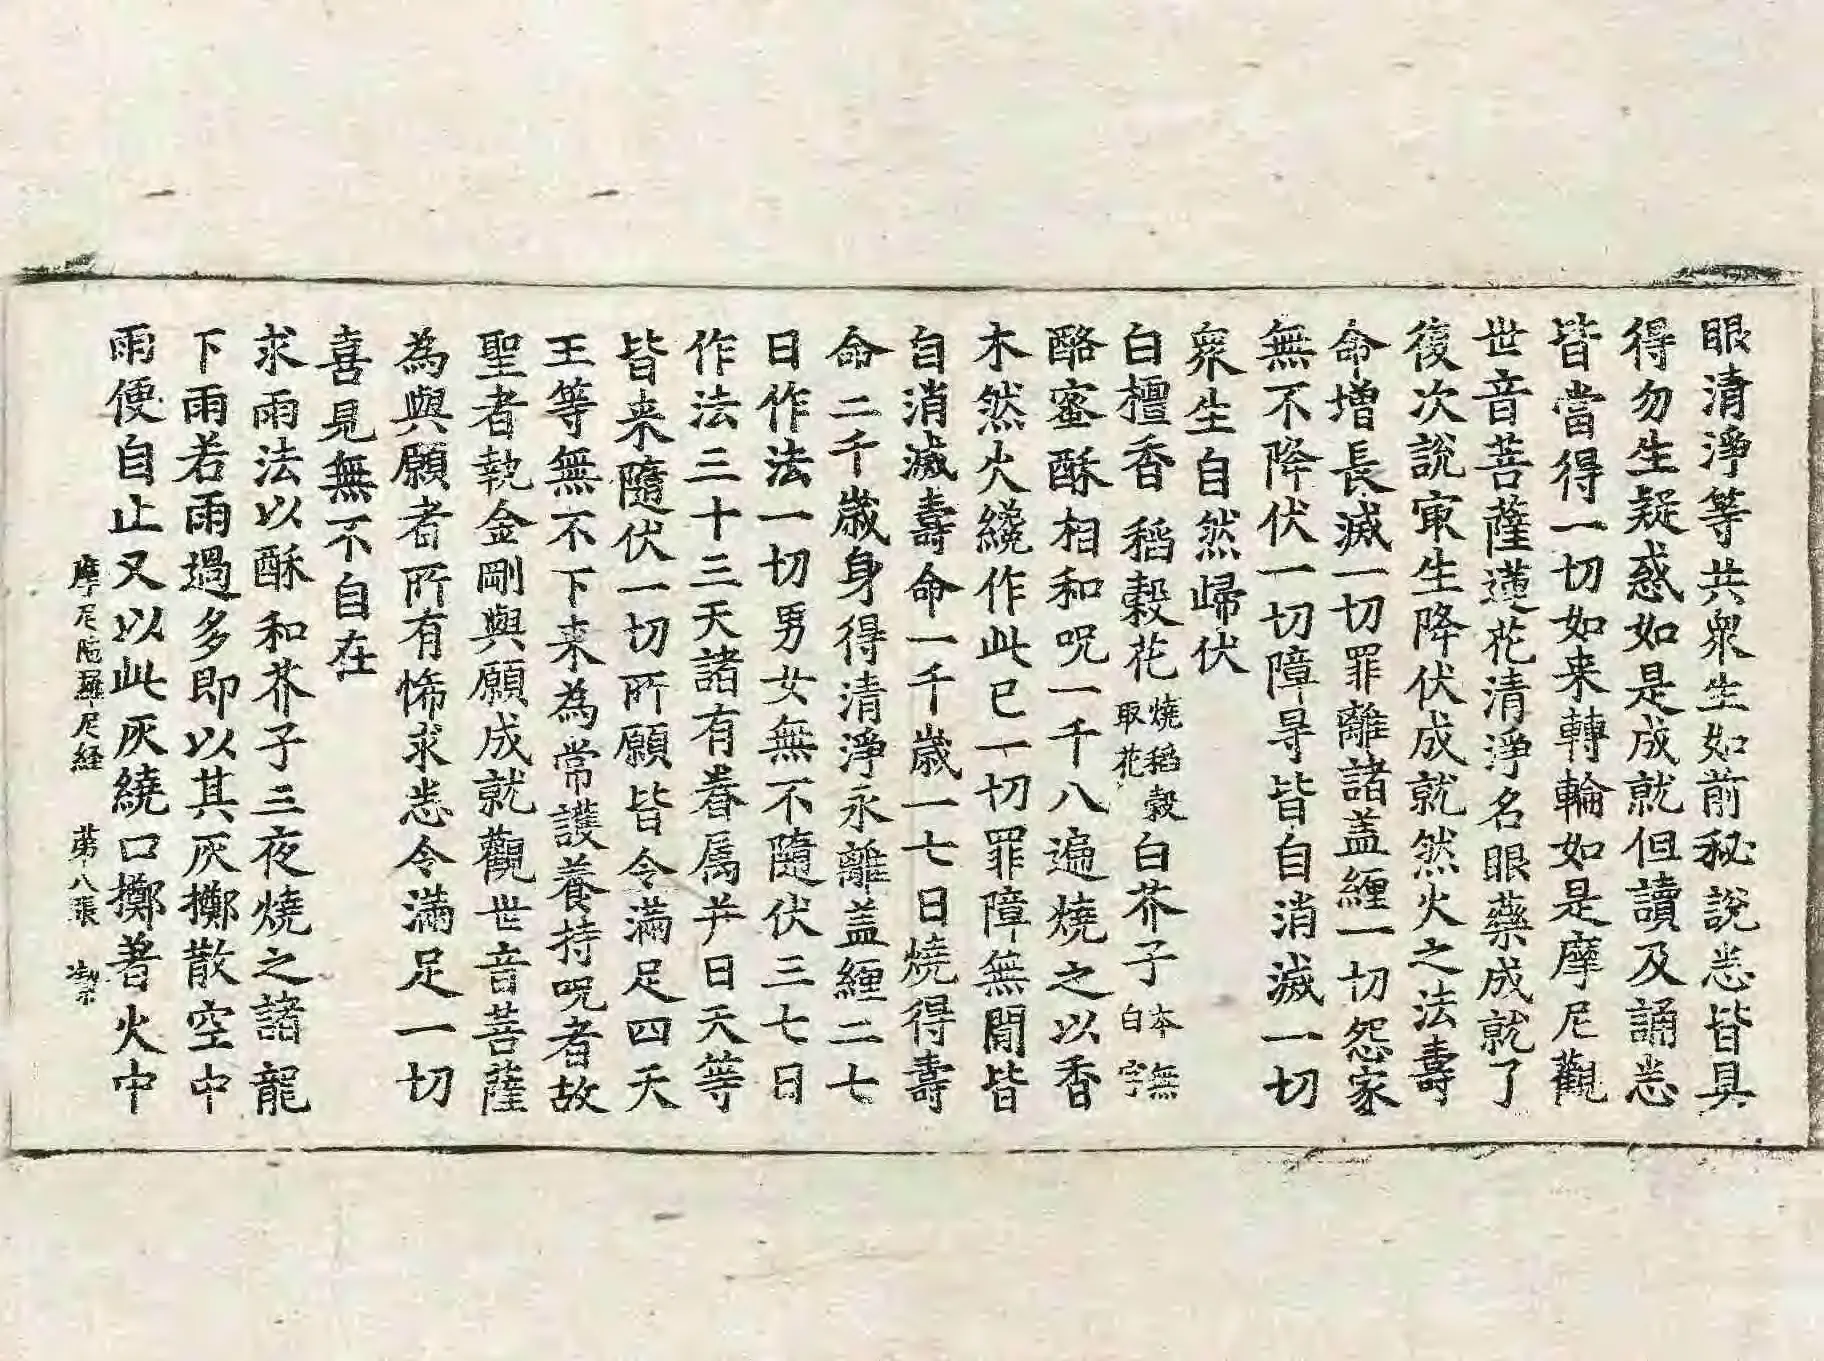 眼清淨等共衆生如前秘說悉皆具
得勿生疑惑如是成就但讀及誦悉
皆當得一切如来轉輪如是摩尼觀
世音菩薩蓮花清淨名眼藥成就了
復次說㝡生降伏成就然火之法壽
命增長滅一切罪離諸盖纏一切怨家
無不降伏一切障㝵皆自消滅一切
衆生自然歸伏
白檀香稻穀花燒稻穀取花白芥子本無白字
酪蜜酥相和呪一千八遍燒之以香
木然火纔作此已一切罪障無閒皆
自消滅壽命一千歲一七日燒得壽
命二千歲身得清淨永離盖纏二七
日作法一切男女無不隨伏三七日
作法三十三天諸有眷属并日天等
皆来隨伏一切所願皆令滿足四天
王等無不下来為常護養持呪者故
聖者執金剛與願成就觀世音菩薩
為與願者所有悕求悉令滿足一切
喜見無不自在
求雨法以酥和芥子三夜燒之諸龍
下雨若雨過多即以其灰擲散空中
雨便自止又以此灰繞口擲著火中
摩尼陁羅尼経 苐八張